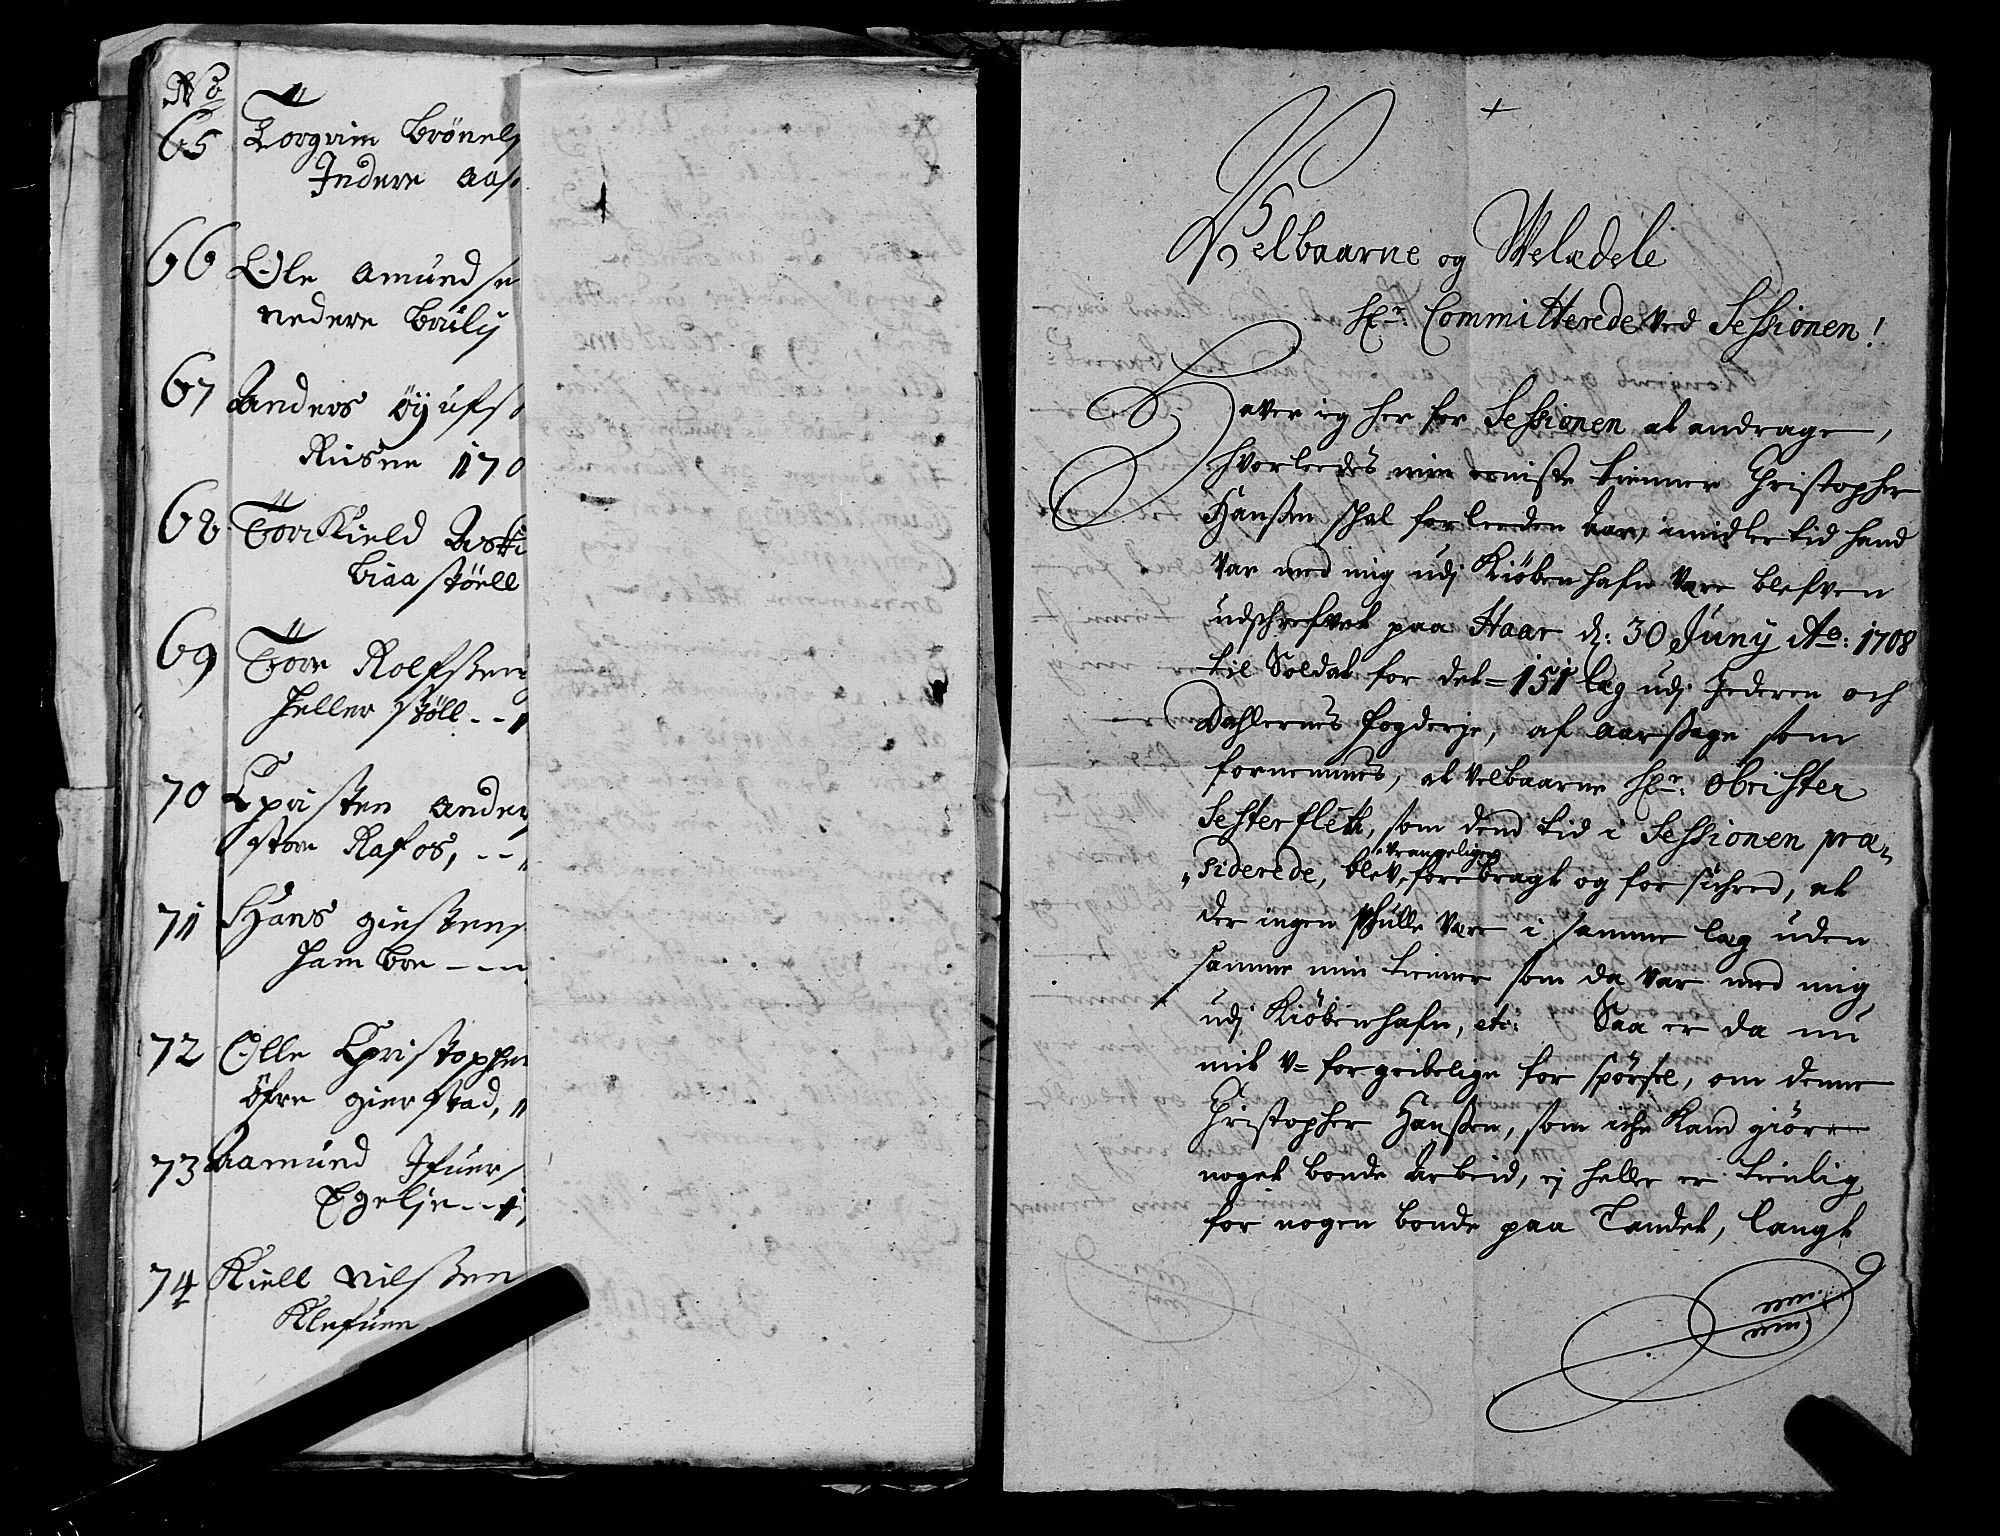 No
65 Torgrim Brönels
Indere Aas
66 Ole Amundse
nedere Bruly
67 Anders Öyufs
Riisne 170
68 Torkield Aski
biaa stöell
69 Tore Rolfssen
Heller stöll - -
70 Christen Ander
store Rafos, - -
71 Hans
Ham Bre - - -
72 Olle Christopher
Öfre gierstad,
73 Aamund Ifuers
Egelje - -
74 Kiell Nilssen
Klefuen
Velbaarne og Welædele
Hr: Committerede ved Sessionen!
Haver ieg her for Sessionen at andrage,
hvorleedes min eeniste tienner Christopher
Hanssen schal forleeden Aar, imidlertid hand
var med mig udj Kiöbenhafn være blefven
udschrefvet paa Haar d: 30 Juny Ao: 1708
til Soldat for det = 151 læg udj Jederen och
Dahlernes fogderje, af aarssage som
fornemmes, at velbaarne Hr: Obrister
Sesterfleth, som dend tid i Sessionen præ-
siderede, blev vrangeligen forebragt og forsichred, at
der ingen schulle være i samme læg uden
samme min tienner som da var med mig
udj Kiöbenhafn, etc: Saa er da nu
mit v= forgribelige forspörsel, om denne
Christopher Hanssen, som iche kand giöre
noget bonde Arbeid, ej heller er tienlig
for nogen bonde paa Landet, langt